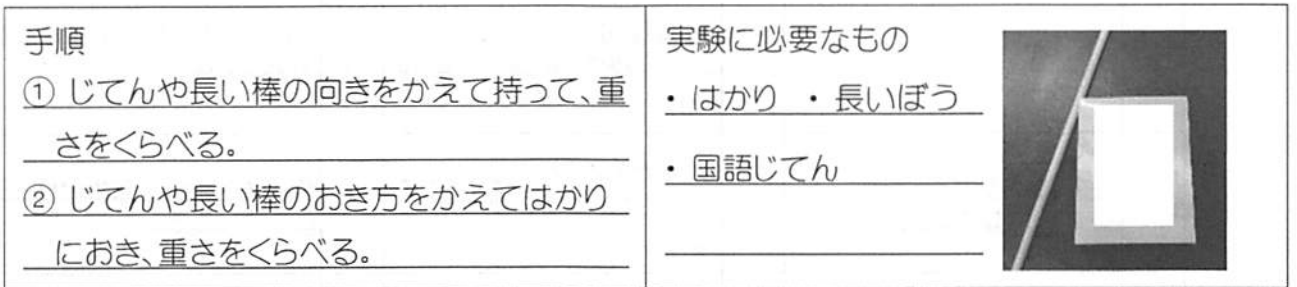 手順
① じてんや長い棒の向きをかえて持って、重
さをくらべる。
② じてんや長い棒のおき方をかえてはかり
におき、重さをくらべる。
実験に必要なもの
・はかり ・長いぼう
・国語じてん